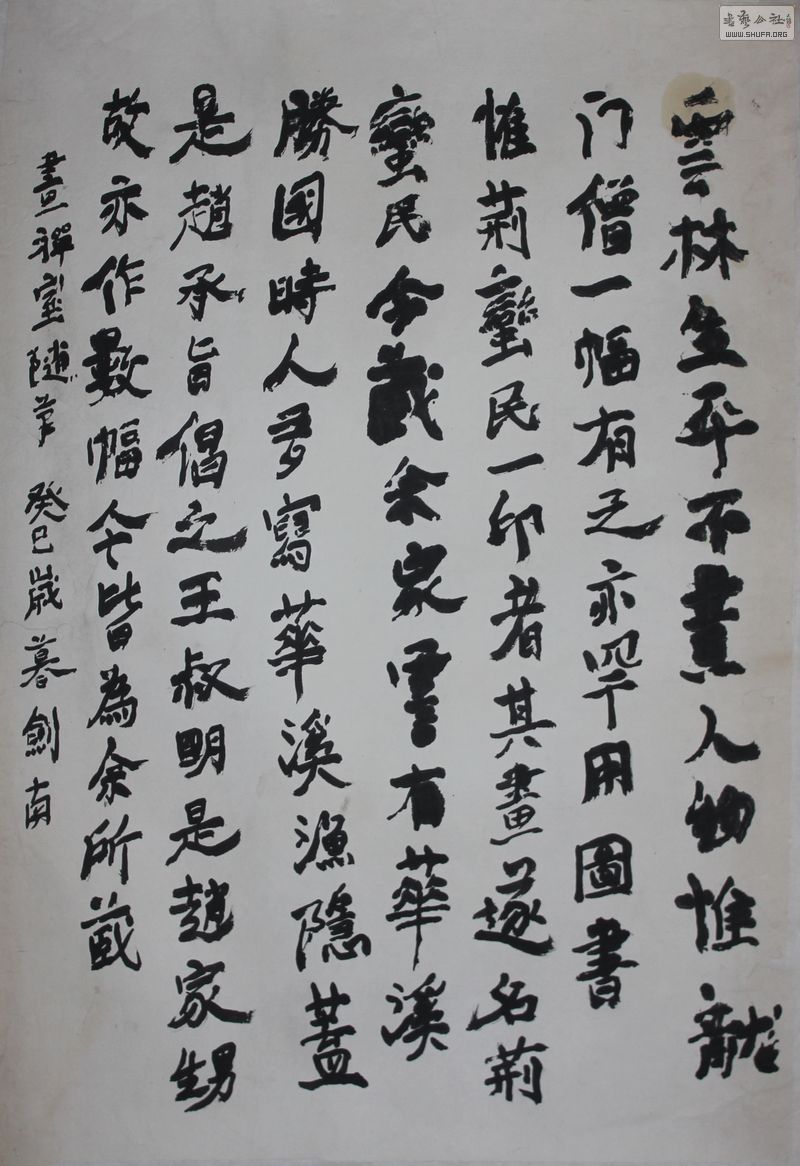 雲林生平不畫人物惟龍
门僧一幅有之亦罕用圖書
惟荊蠻民一印者其畫遂名荊
蠻民今藏余家雲有華溪
勝國時人多寫華溪漁隱蓋
是趙承旨倡之王叔明是趙家甥
故亦作數幅今皆為余所藏
畫禪室隨筆 癸巳歲暮劍南
書藝公社
WWW.SHUFA.ORG